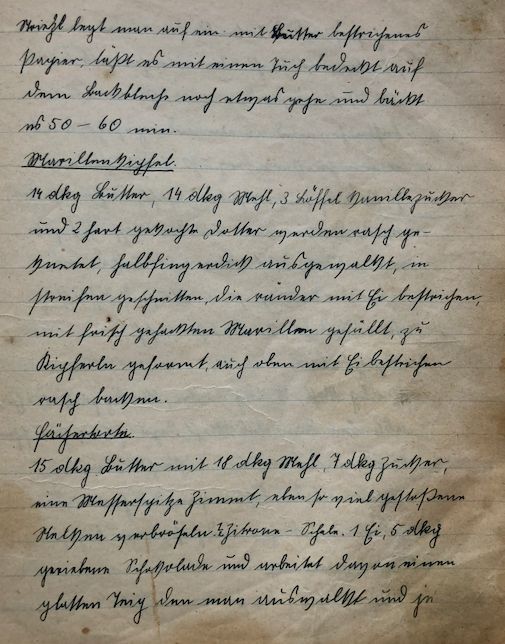 Striezl legt man auf ein mit Butter bestrichenes
Papier, läßt es mit einen Tuch bedeckt auf
dem Backbleche noch etwas gehe und bäckt
es 50 - 60 min.
Marillenkipfel.
14 dkg Butter, 14 dkg Mehl, 3 Löffel Vanillezucker
und 2 hart gekochte Dotter werden rasch ge-
knetet, halbfingerdick ausgewalkt, in
streifen geschnitten, die ränder mit Ei bestrichen,
mit frisch gehackten Marillen gefüllt, zu
Kipferln geformt, auch oben mit Ei bestrichen
rasch backen.
Fächertorte.
15 dkg Butter mit 18 dkg Mehl, 7 dkg Zucker,
eine Messerspitze Zimmt, eben so viel gestoßene
Nelken verbröseln ½ Zitrone - Schale. 1 Ei, 5 dkg
geriebene Schokolade und arbeitet davon einen
glatten Teig den man auswalkt und je